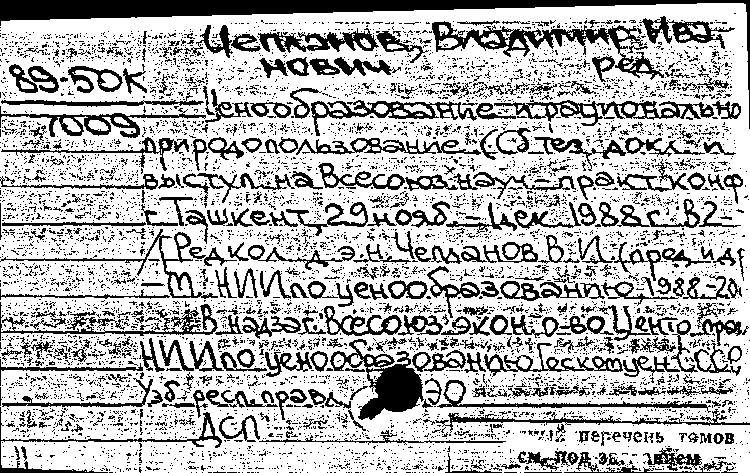 Чепланов, Владимир Ива-
нович ред.
89-50К
7009
Ценообразование и рационально
природопользование. (Сб. тез. докл. и
выступ. на Всесоюз. науч.-практ. конф
г. Ташкент, 29 нояб. - 1 дек. 1988 г. В 2-
/ Редкол. д.э.н. Чепланов В. И. (пред. и др
- М. НИИ по ценообразованию, 1988.-20
В надзаг. Всесоюз. экон. о-во Центр. прав
НИИ по ценообразованию Госкомцен СССР,
Узб. респ. правл. ЭО
ДСП
перечень томов
см. под
11